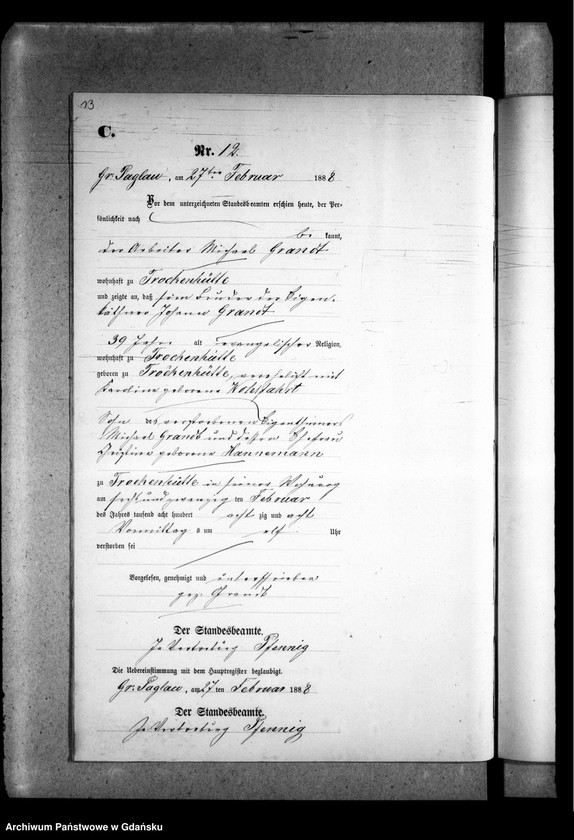 13
C.
Nr. 12.
Gr. Paglau, am 27ten Februar 1888
Vor dem unterzeichneten Standesbeamten erschien heute, der Per-
sönlichkeit nach
be kannt,
der Arbeiter Michael Grandt
wohnhaft zu Trochenhütte
und zeigte an, daß sein Bruder der Eigen-
käthner Johann Grandt
39 Jahre alt evangelischer Religion,
wohnhaft zu Trochenhütte
geboren zu Trochenhütte, verehelicht mit
Karoline geborene Wohlfahrt
Sohn des verstorbenen Eigenthümers
Michael Grandt und dessen Ehefrau
Justine geborene Hannemann
zu Trochenhütte in seiner Wohnung
am sechsundzwanzig ten Februar
des Jahres tausend acht hundert acht zig und acht
Vormittag s um elf Uhr
verstorben sei
Vorgelesen, genehmigt und unterschrieben
gez. Grandt
Der Standesbeamte.
In Vertretung Pfennig
Die Uebereinstimmung mit dem Hauptregister beglaubigt.
Gr. Paglau, am 27 ten Februar 1888
Der Standesbeamte.
In Vertretung Pfennig
Archiwum Państwowe w Gdańsku